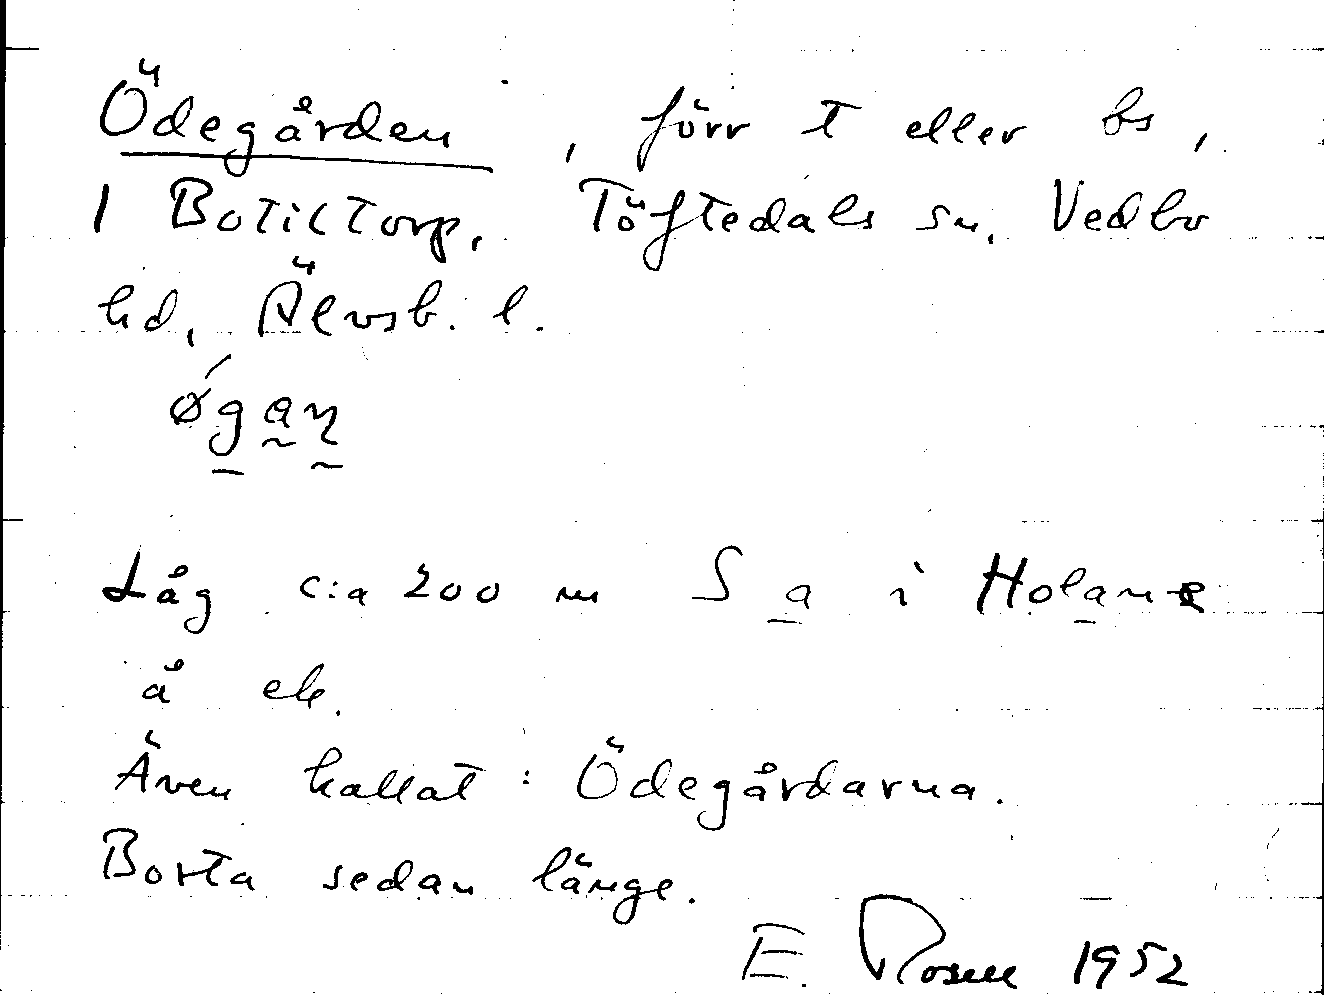 Ödegården, förr t eller bs,
1 Botilstorp, Töftedals sn, Vedbo
hd, Älvsb. l.
ǿgan̥
Låg c:a 200 m S a i Holane
å ek.
Även kallat: Ödegårdarna.
Borta sedan länge.
E. Rosell 1952